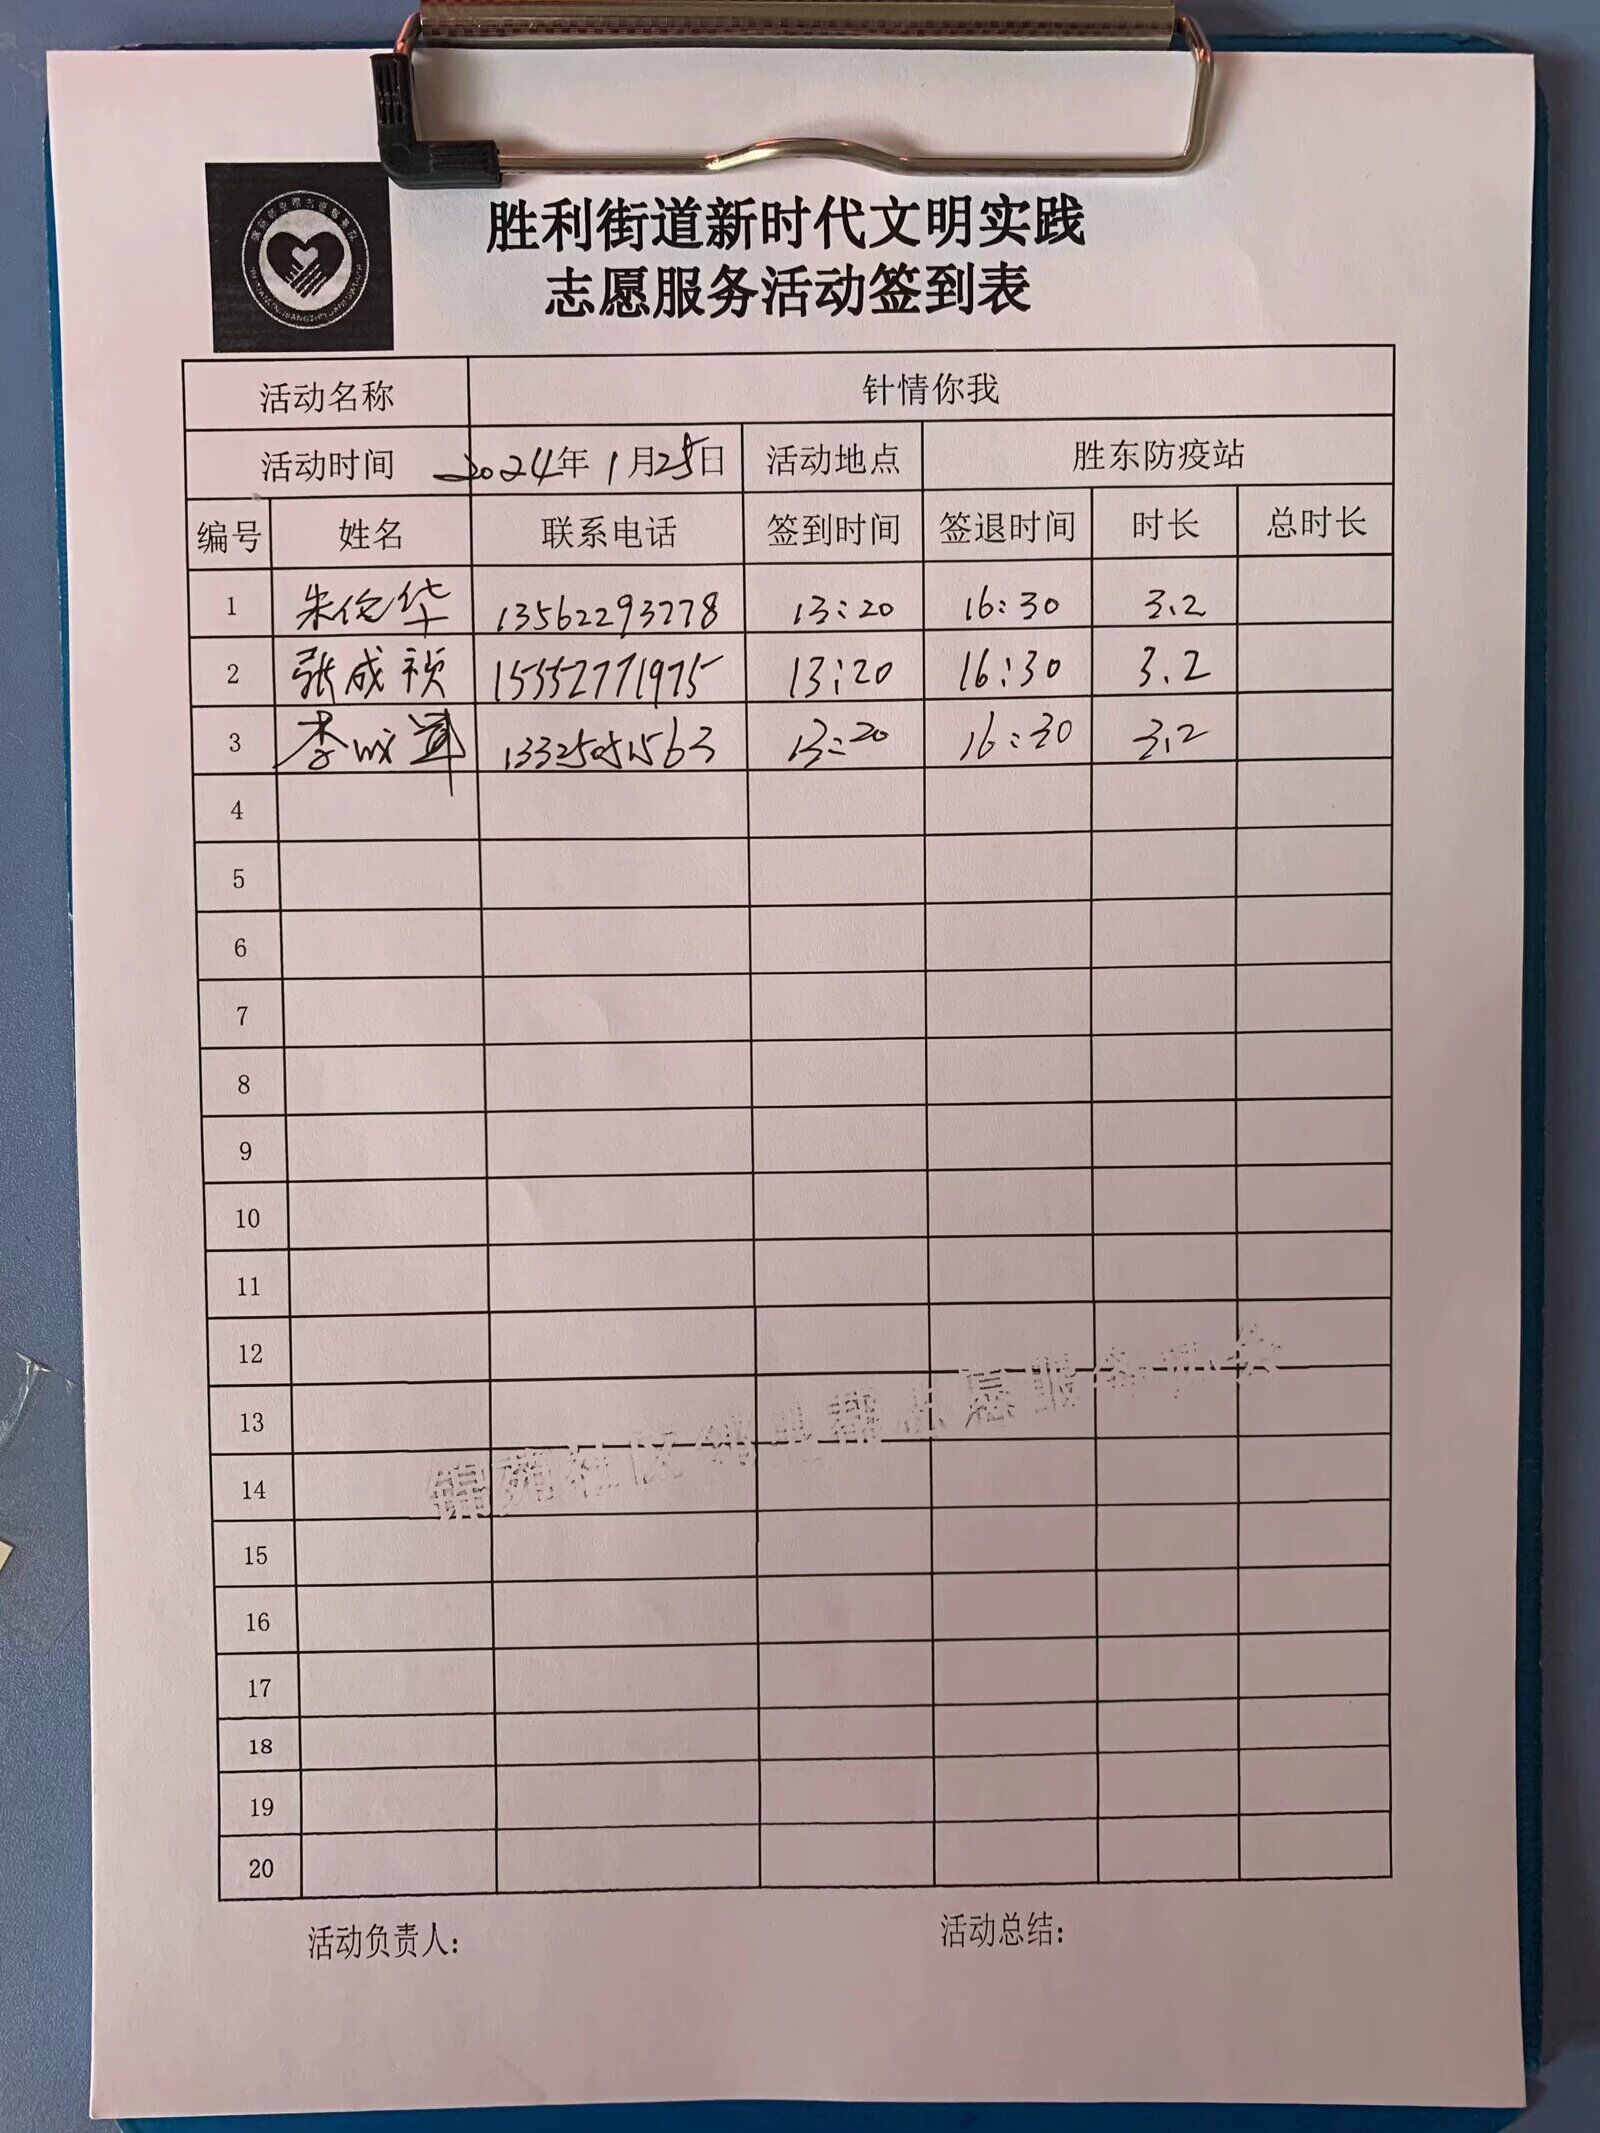 胜利街道新时代文明实践
志愿服务活动签到表
活动名称 针情你我
活动时间 2024年1月25日 活动地点 胜东防疫站
编号 姓名 联系电话 签到时间 签退时间 时长 总时长
1 朱伦华 13562293778 13:20 16:30 3.2
2 张成祯 15552771975 13:20 16:30 3.2
3 李成 13325051563 13:20 16:30 3.2
4
5
6
7
8
9
10
11
12
13
14
15
16
17
18
19
20
活动负责人: 活动总结: